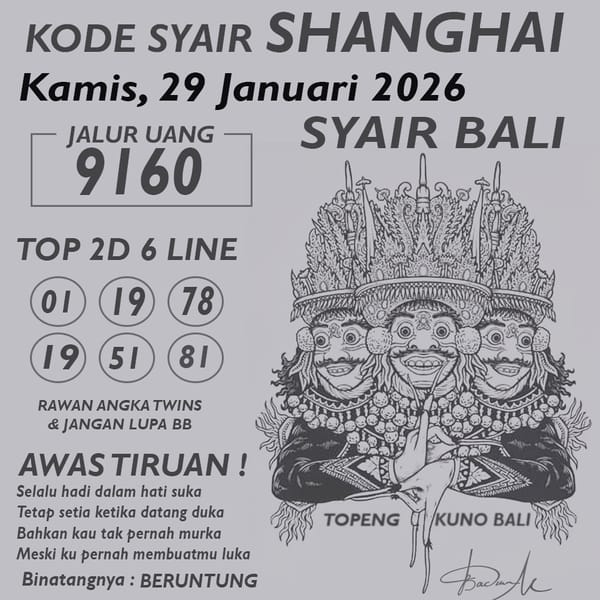 KODE SYAIR SHANGHAI
Kamis, 29 Januari 2026
SYAIR BALI
JALUR UANG
9160
TOP 2D 6 LINE
01 19 78
19 51 81
RAWAN ANGKA TWINS
& JANGAN LUPA BB
AWAS TIRUAN !
Selalu hadi dalam hati suka
Tetap setia ketika datang duka
Bahkan kau tak pernah murka
Meski ku pernah membuatmu luka
Binatangnya : BERUNTUNG
TOPENG KUNO BALI